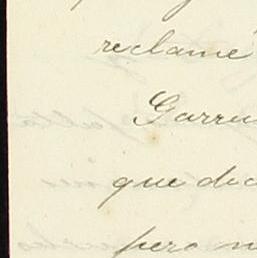 reclamé
Garru
que dic
pero n